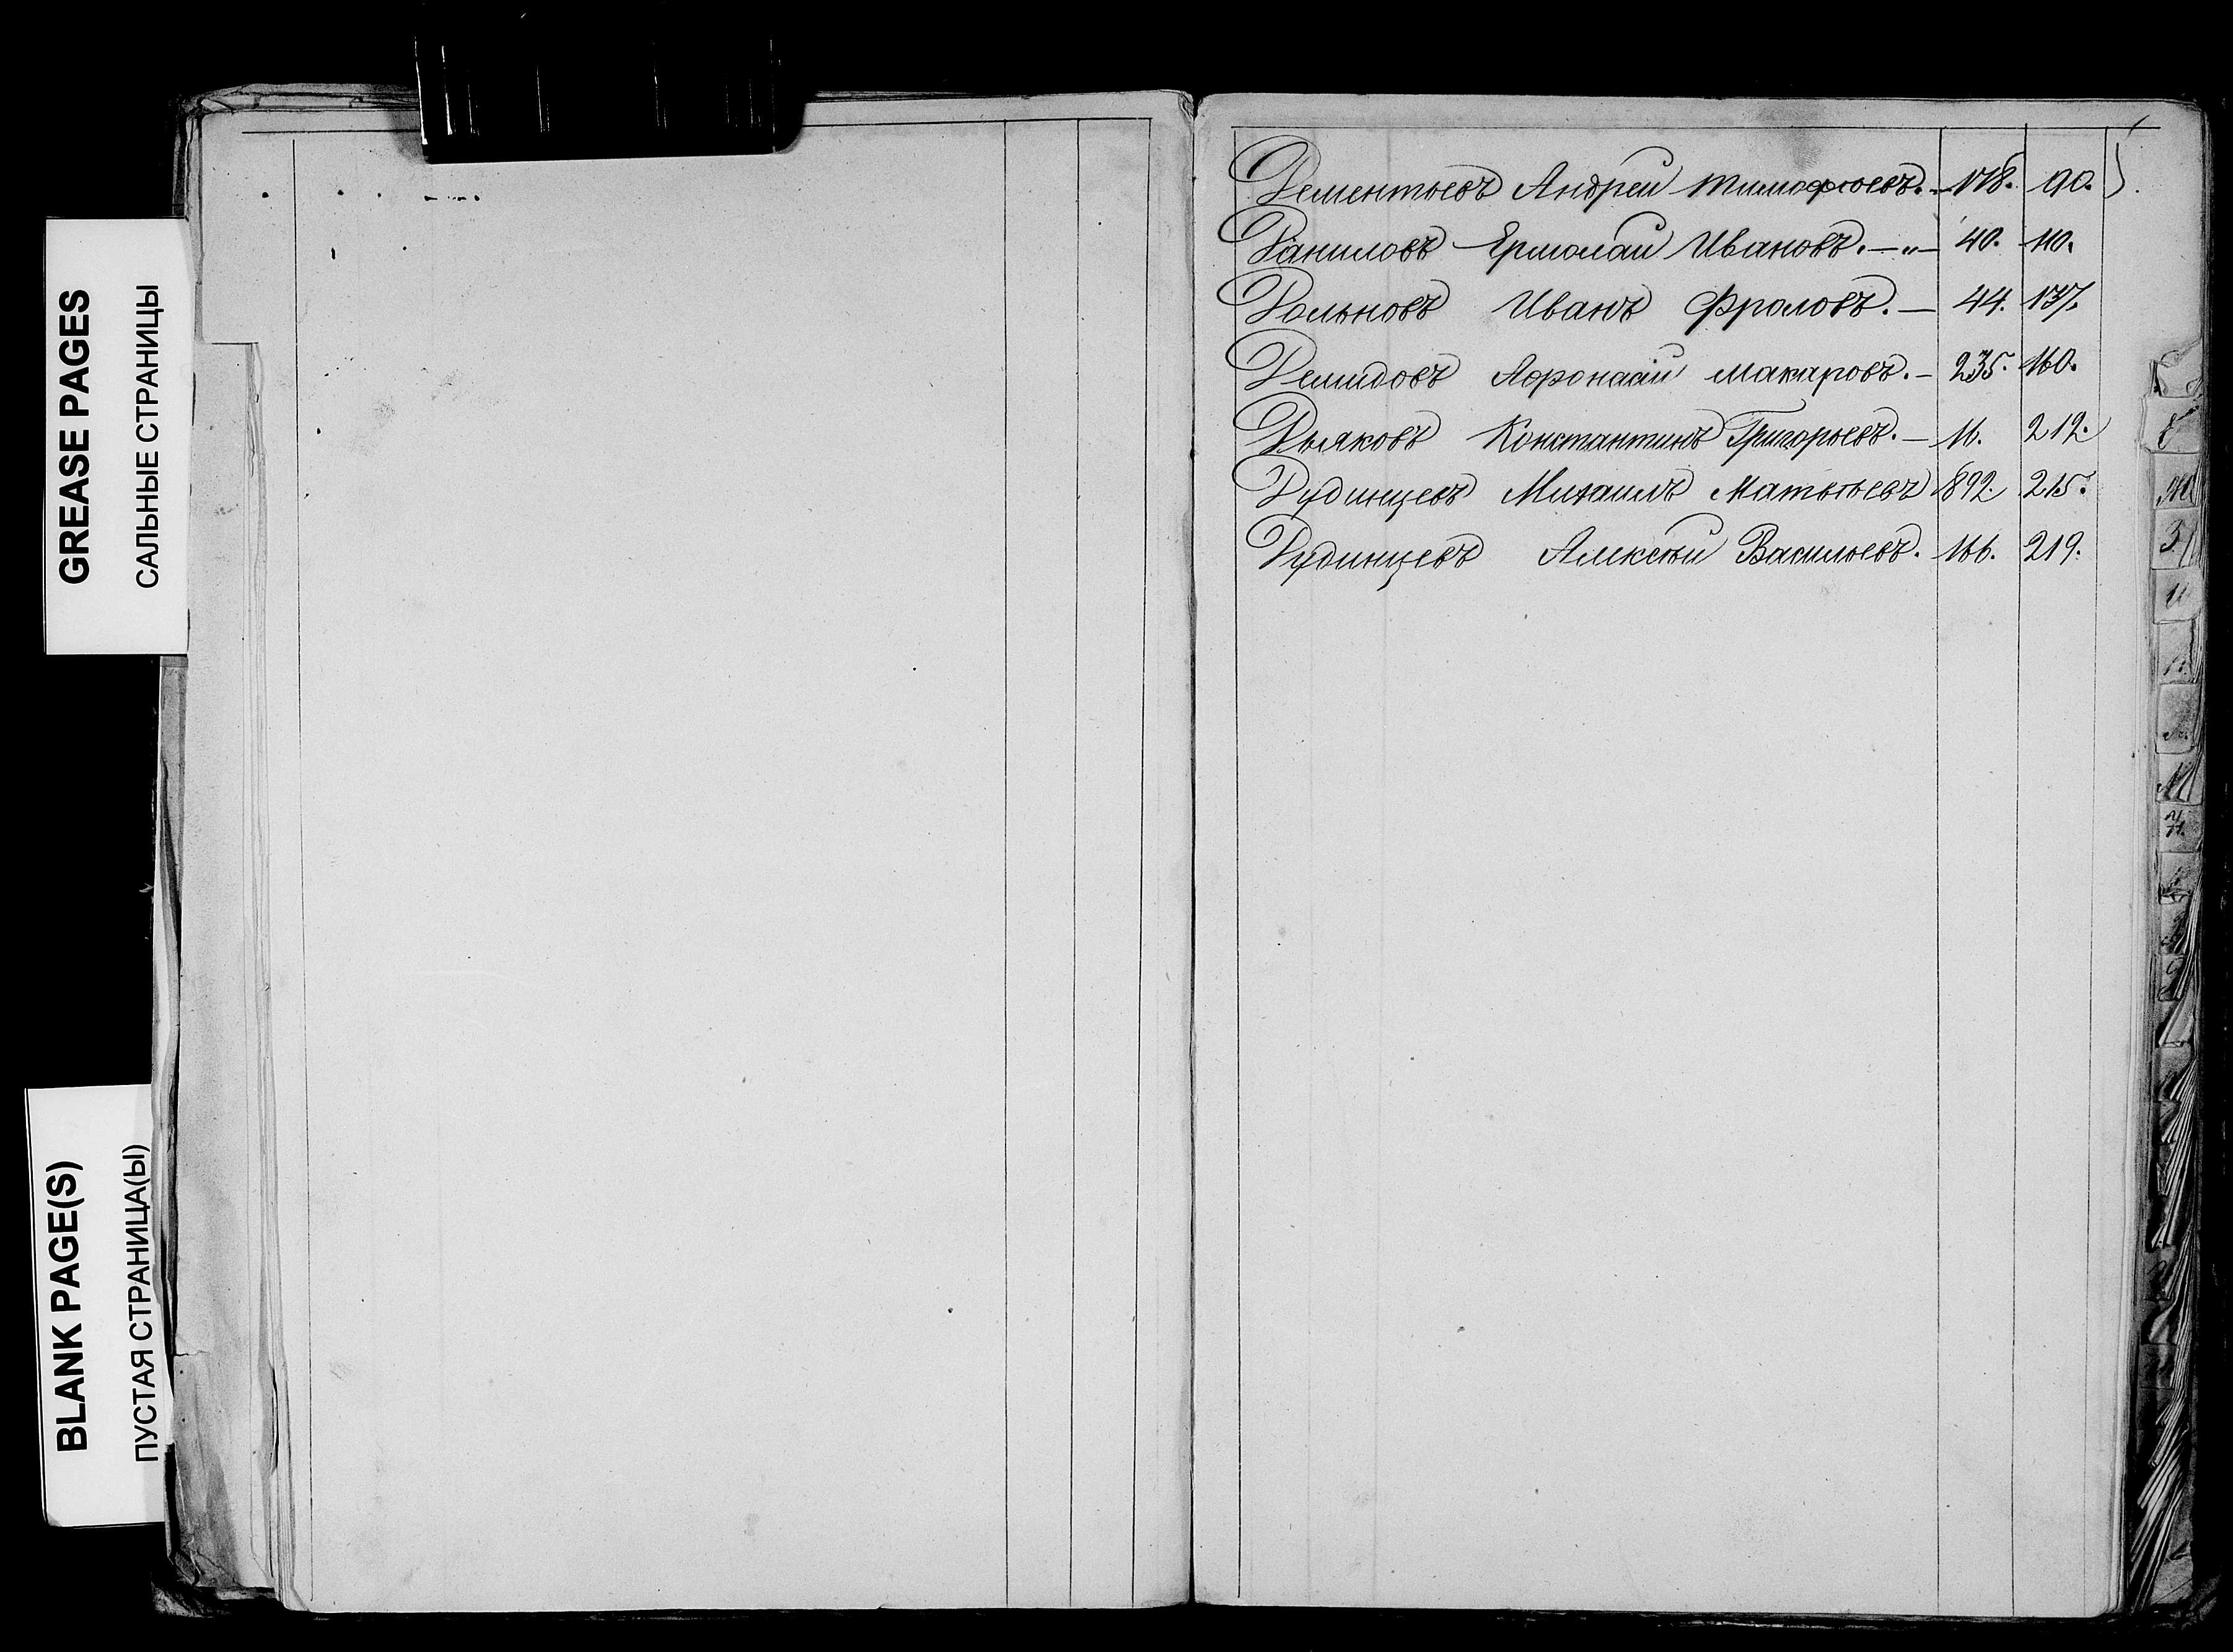 GREASE PAGES
САЛЬНЫЕ СТРАНИЦЫ
BLANK PAGE(S)
ПУСТАЯ СТРАНИЦА(Ы)
Дементьевъ Андрей Тимофѣевъ. 178. 90.
Даниловъ Ермолай Ивановъ. — „ — 40. 110.
Дольновъ Иванъ Фроловъ. — 44. 137.
Демидовъ Афонасій Макаровъ. — 235. 160.
Дьяковъ Константинъ Григорьевъ. — 16. 212.
Дудинцевъ Михаилъ Матвѣевъ 892. 215.
Дудинцевъ Алексѣй Васильевъ. 166. 219.
Ж
З
И
Н.